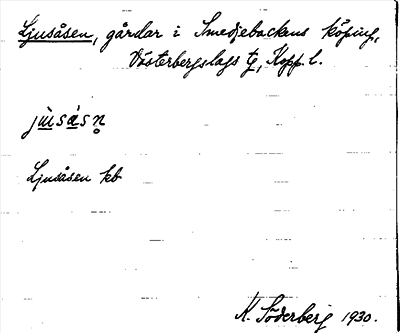 Ljusåsen, gårdar i Smedjebackens köping,
Västerbergslags tg, Kopp. l.
jùsá̀sn̥
Ljusåsen kb
K. Söderberg 1930.